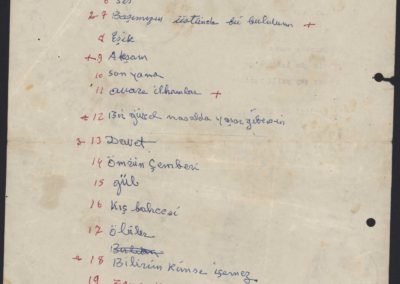 6 Ses
7 Başımızın üstünde bir buldum +
8 Eşik
+ 9 Akşam
10 son yama
11 avare ilhamlar +
+ 12 Bir güzel masalda yaşar gibisin
13 Davet
14 Ömrün Çemberi
15 gül
16 Kış bahçesi
17 ölüler
+ 18 Bilirim Kimse içemez
19